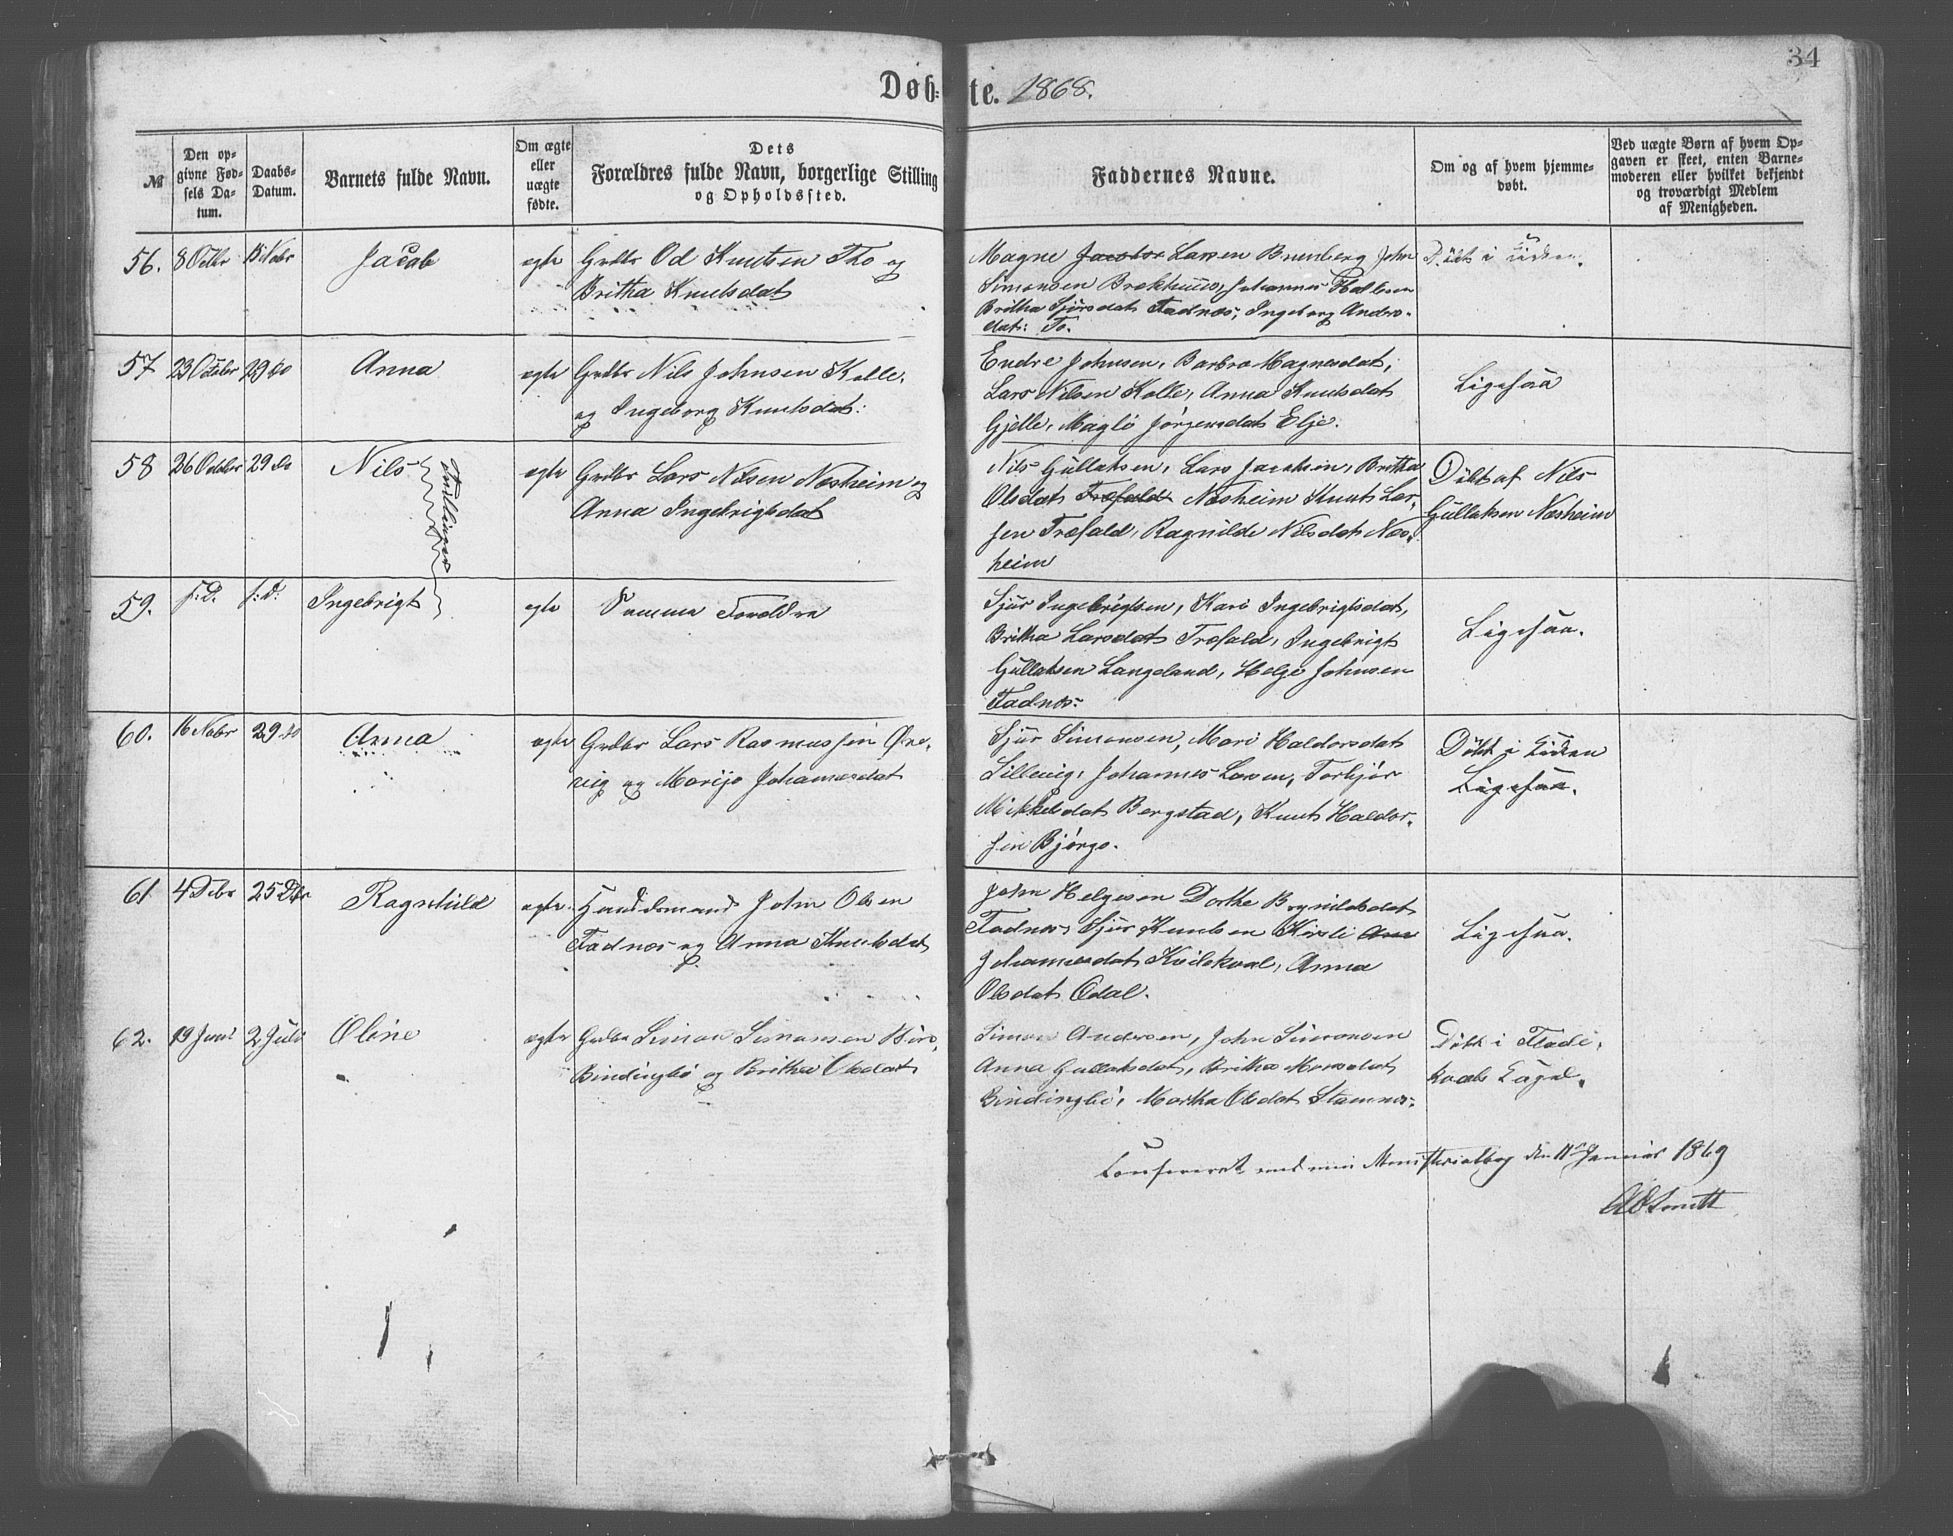 34
Døb- te. 1868.
№
Den op-
givne Fød-
sels Da-
tum.
Daabs-
Datum.
Barnets fulde Navn.
Om ægte
eller
uægte
fødte.
Dets
Forældres fulde Navn, borgerlige Stilling
og Opholdssted.
Faddernes Navne.
Om og af hvem hjemme-
døbt.
Ved uægte Børn af hvem Op-
gaven er skeet, enten Barne-
moderen eller hvilket bekjendt
og troværdigt Medlem
af Menigheden.
56. 8 Octbr 15 Nobr Jacob ægte Grdbr Od Knutsen Tho og
Britha Knutsdat
Magne Larsen Brunberg John
Simonsen Brekhuus, Johannes
Britha Sjursdat Fadnæs, Ingeborg Anders-
dat: To.
Døbt i Kirken.
57 23 Octobr 29 do Anna ægte Grdbr Nils Johnsen Kolle,
og Ingeborg Knutsdat:
Endre Johnsen, Barbro Magnesdat,
Lars Nilsen Kolle, Anna Knutsdat
Gjelle, Maglo Jørgensdat Elje.
Ligesaa
58 26 Octobr 29 do Nils Tvillinger ægte Grdbr Lars Nilsen Næsheim og
Anna Ingebrigtsdat
Nils Gullaksen, Lars Jacobsen, Britha
Olsdat Træfald Næsheim Knut Lar-
sen Træfald, Ragnilde Nilsdat Næs-
heim
Døbt af Nils
Gullaksen Næsheim
59. s:D. s:D: Ingebrigt ægte Samme Forældre
Sjur Ingebrigtsen, Kari Ingebrigtsdat,
Britha Larsdat Træfald, Ingebrigt
Gullaksen Langeland, Helge Johnsen
Fadnæs
Ligesaa.
60. 16 Nobr 29 do Anna ægte Grdbr Lars Rasmussen Øre-
vig og Marijo Johannesdat
Sjur Simonsen, Mari Haldorsdat
Sillevig, Johannes Larsen, Torbjør
Mikkelsdat Bergstad, Knut Haldor-
sen Bjørgo.
Døbt i Kirken
Ligesaa.
61 4 Debr 25 Dbr Ragnhild ægte Huusmand John Olsen
Fadnæs og Anna Knutsdat
John Helgesen Dorthe Brynildsdat
Fadnæs, Sjur Knutsen Kirsti
Johannesdat Kvilekval, Anna
Olsdat Odal.
Ligesaa.
62. 19 Juni 2 Juli Oline ægte Grdbr Simon Simonsen
Bindingbø og Britha Olsdat
Simon Andersen, John Simonsen
Anna Gullaksdat, Britha Monsdat
Bindingbø, Martha Olsdat Stamnæs
Døbt i Flade-
kvals Capel.
Confereret med min Ministerialbog den 11te Januar 1869